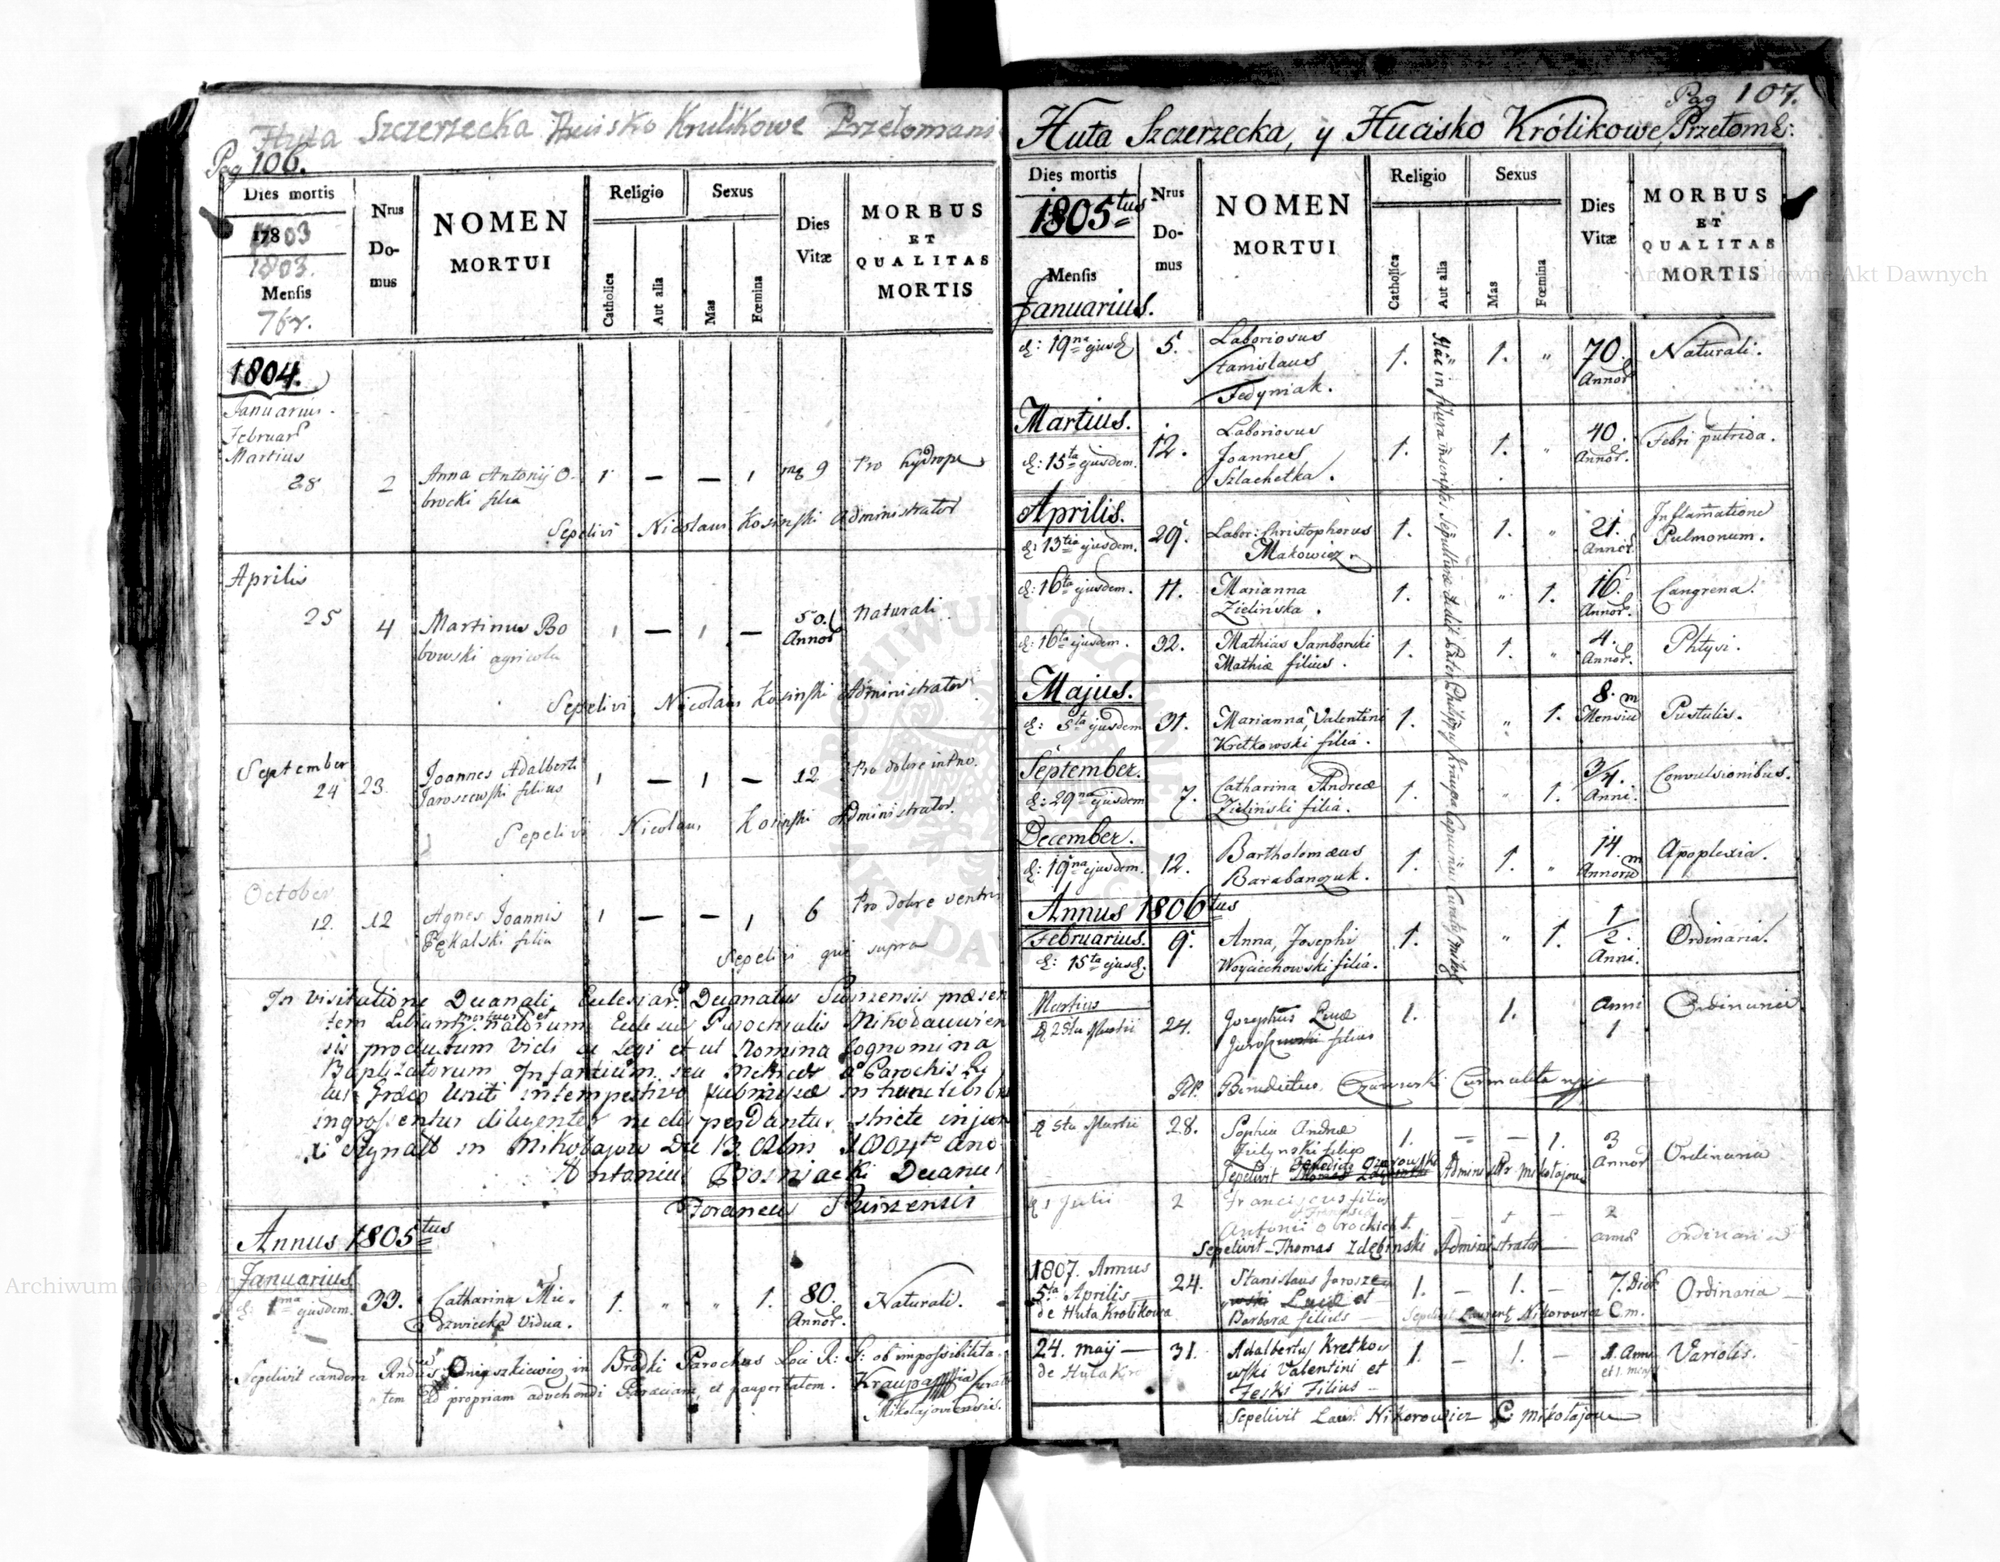 Huta Szczerzecka Hucisko Krulikowe Przełomani
Pag 106.
Dies mortis
178 03
1803.
Menſis
7br.
Nrus
Do-
mus
NOMEN
MORTUI
Religio
Catholica
Aut alia
Sexus
Mas
Fœmina
Dies
Vitæ
MORBUS
ET
QUALITAS
MORTIS
1804.
Januarius.
Februar
Martius
28 2 Anna Antonij O- 1 — — 1 9 Pro hydrope
brocki filia
Sepelivi Nicolaus Kosinſki Administrator
Aprilis
25 4 Martinus Bo 1 — 1 — 50. Annor Naturali
bowski agricola
Sepelivi Nicolaus Kosinſki Administrator
September
24 23. Joannes Adalberti 1 — 1 — 12 Pro dolore
Jaroszewſki filius
Sepelivi Nicolaus Kosinſki Administrator.
October
12. 12 Agnes Joannis 1 — — 1 6 Pro dolore ventris
Pękalski filia
Sepelivi qui supra
In visitatione Decanali Eclesiar. Decanatus præsen
tem Librum mortuor et natorum Eclesiæ Parochialis Mikolauvien
sis productum vidi ac Legi et ut Nomina Cognomina
Baptizatorum Infantium seu a Parochis
Graeco Unit intempestive in hunc
diligenter ne stricte
Mikołajow Die 13 1804to
Antonius Bosniacki Decanus
Foraneus
Annus 1805tus
Januarius
d: 1ma ejusdem. 33. Catharina Mie- 1. „ „ 1. 80. Annor. Naturali.
dzwiecka Vidua.
Sepelivit eandem Onieszkiewicz in Brodki Parochus Loci R: G: ob impossibilita-
tem ad propriam advehendi Parociam et paupertatem.
Mikołajoviensis.
Pag 107.
Huta Szczerzecka, y Hucisko Królikowe, Przełom:
Dies mortis
1805tus
Mensis
Januarius.
Nrus
Do-
mus
NOMEN
MORTUI
Religio
Catholica
Aut alia
Sexus
Mas
Fœmina
Dies
Vitæ
MORBUS
ET
QUALITAS
MORTIS
d: 19na ejusd 5. Laboriosus 1. 1. „ 70. Annor Naturali.
Stanislaus
Fedyniak.
Martius.
d: 15ta ejusdem. 12. Laboriosus 1. 1. „ 40. Annor. Febri putrida.
Joannes
Szlachetka.
Aprilis.
d: 13tia ejusdem. 29. Labor: Christophorus 1. 1. „ 21. Annor. Inflamatione
Makowicz. Pulmonum.
d: 16ta ejusdem. 11. Marianna 1. „ 1. 16. Annor. Cangrena.
Zielinska.
d: 16ta ejusdem. 32. Mathias Samborski 1. 1. „ 4. Annor. Phtysi.
Mathiæ filius.
Majus.
d: 5ta ejusdem 31. Marianna, Valentini 1. „ 1. 8. Mensium Pustulis.
Kretkowski filia.
September.
d: 29na ejusdem 7. Catharina Andreæ 1. „ 1. 3/4. Anni. Convulsionibus.
Zieliński filia.
December.
d: 19na ejusdem. 12. Bartholomæus 1. 1. „ 14. Annorum Apoplexia.
Barabanczuk.
Annus 1806tus
Februarius.
d: 15ta ejusd. 9. Anna, Josephi 1. „ 1. 1/2. Anni. Ordinaria.
Woyciechowski filia.
Hac in filura inscriptis Sepulturæ dedit Pater Philippus Kraupa Capucinus
Martius
d 28ta Martii 24. Josephus Lucæ 1. 1. Anni 1 Ordinaria
Jaroszewski filius
RP. Benedictus
d 5ta Martii 28. Sophia Andreæ 1. — — 1. 3 Annor Ordinaria
Zielynski filia
Sepelivit Administr Mikołajow
d 1 Julii 2 Franciscus filius 2 annor ordinaria
Antoni Obrocki
Sepelivit — Thomas Zdębinski Administrator —
1807. Annus
5ta Aprilis 24. Stanislaus Jarosze 1. — 1. — 7. Dier Ordinaria —
wski Lucæ et
de Huta Krolikowa Barbaræ filius — Sepelivit Laurent Nikorowicz C m.
24. maij — 31. Adalbertus Kretkow 1. — 1. — 1. Anni Variolis.
de Huta Kro wſki Valentini et et 1. mens
Filius —
Sepelivit Laur. Nikorowicz C: mikołajow
Archiwum Główne Akt Dawnych